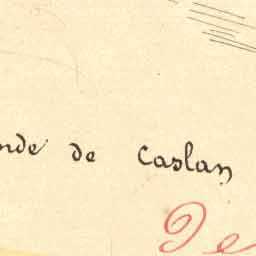 nde de Caslan
De